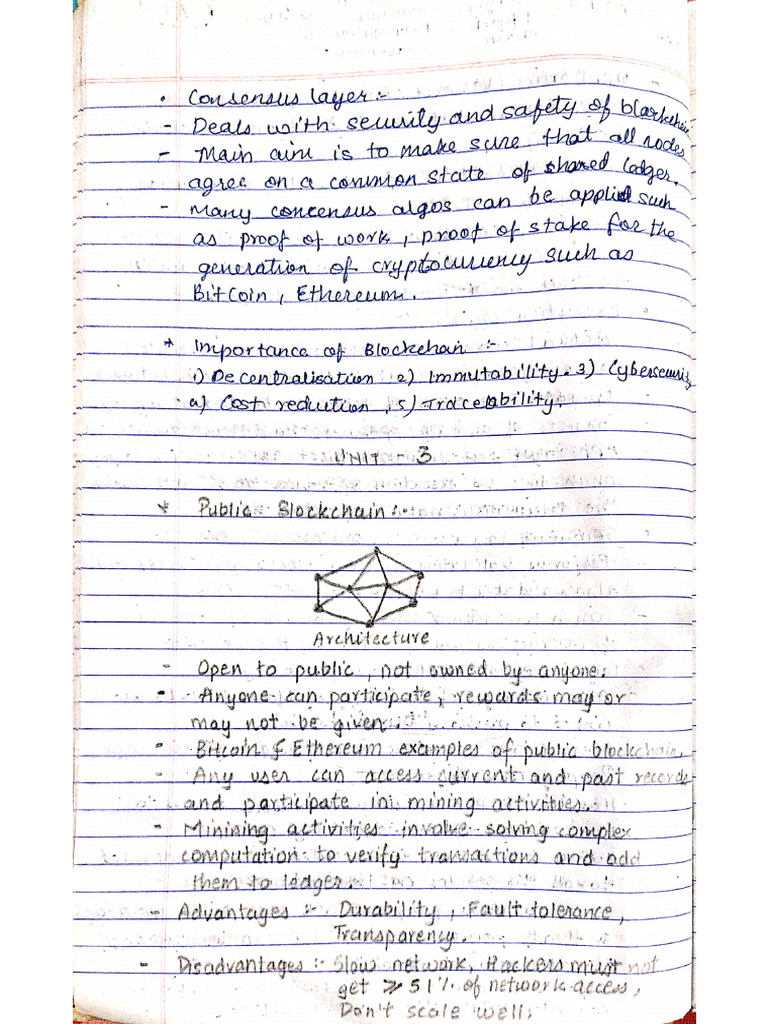 • Consensus layer :-
- Deals with security and safety of blockchain
- Main aim is to make sure that all nodes
agree on a common state of shared ledger.
- Many concensus algos can be applied such
as proof of work, proof of stake for the
generation of cryptocurrency such as
BitCoin, Ethereum.
* Importance of Blockchain :-
1) Decentralisation 2) Immutability. 3) Cybersecurity
4) Cost reduction, 5) Traceability.
UNIT - 3
* Public Blockchain :-
Architecture
- Open to public, not owned by anyone.
- Anyone can participate, rewards may or
may not be given.
- Bitcoin & Ethereum examples of public blockchain.
- Any user can access current and past records
and participate in mining activities.
- Minining activities involve solving complex
computation to verify transactions and add
them to ledger.
- Advantages :- Durability, Fault tolerance,
Transparency.
- Disadvantages :- Slow network, Hackers must not
get ≥ 51% of network access,
Don't scale well.